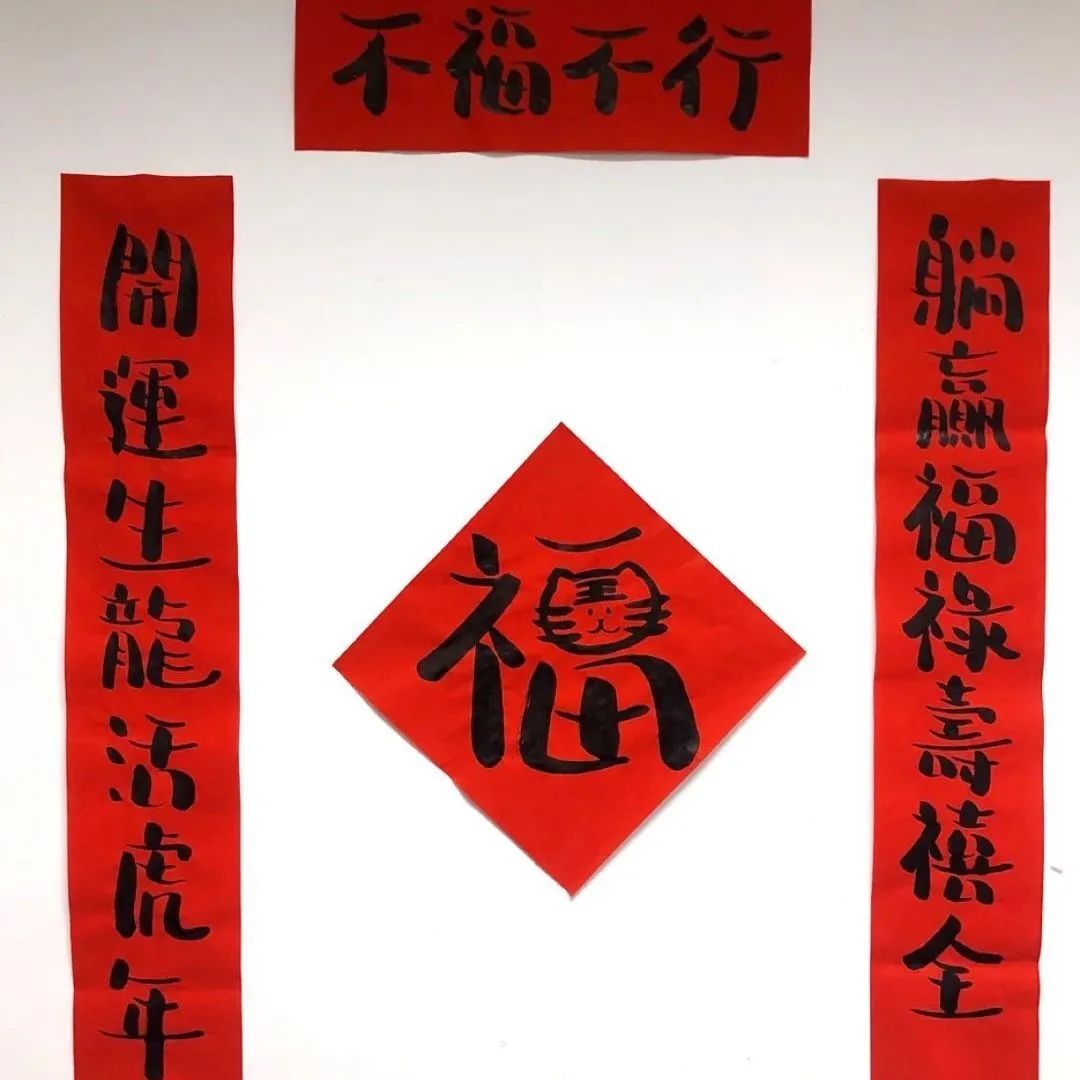 不福不行
躺贏福祿壽禧全
開運生龍活虎年
福